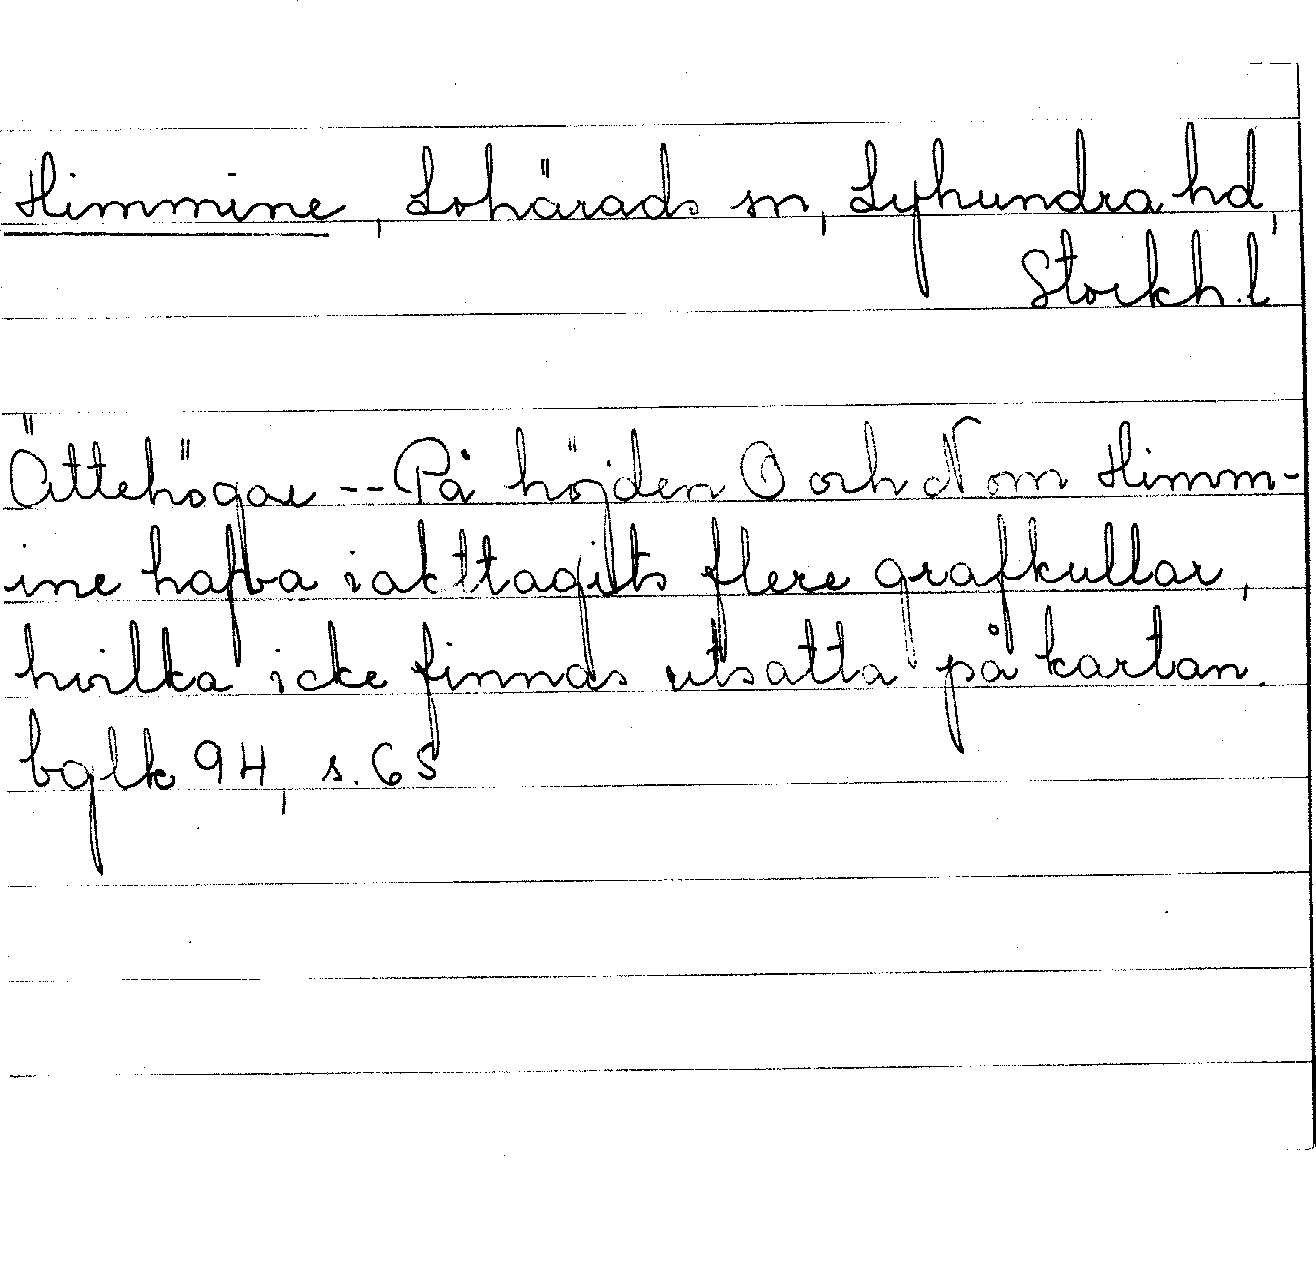 Himmine, Lohärads sn, Lyhundra hd,
Stockh. l
Ättehögar -- På höjden O och N om Himm-
ine hafva iakttagits flere grafkullar,
hvilka icke finnas utsatta på kartan.
bglk 94, s. 65